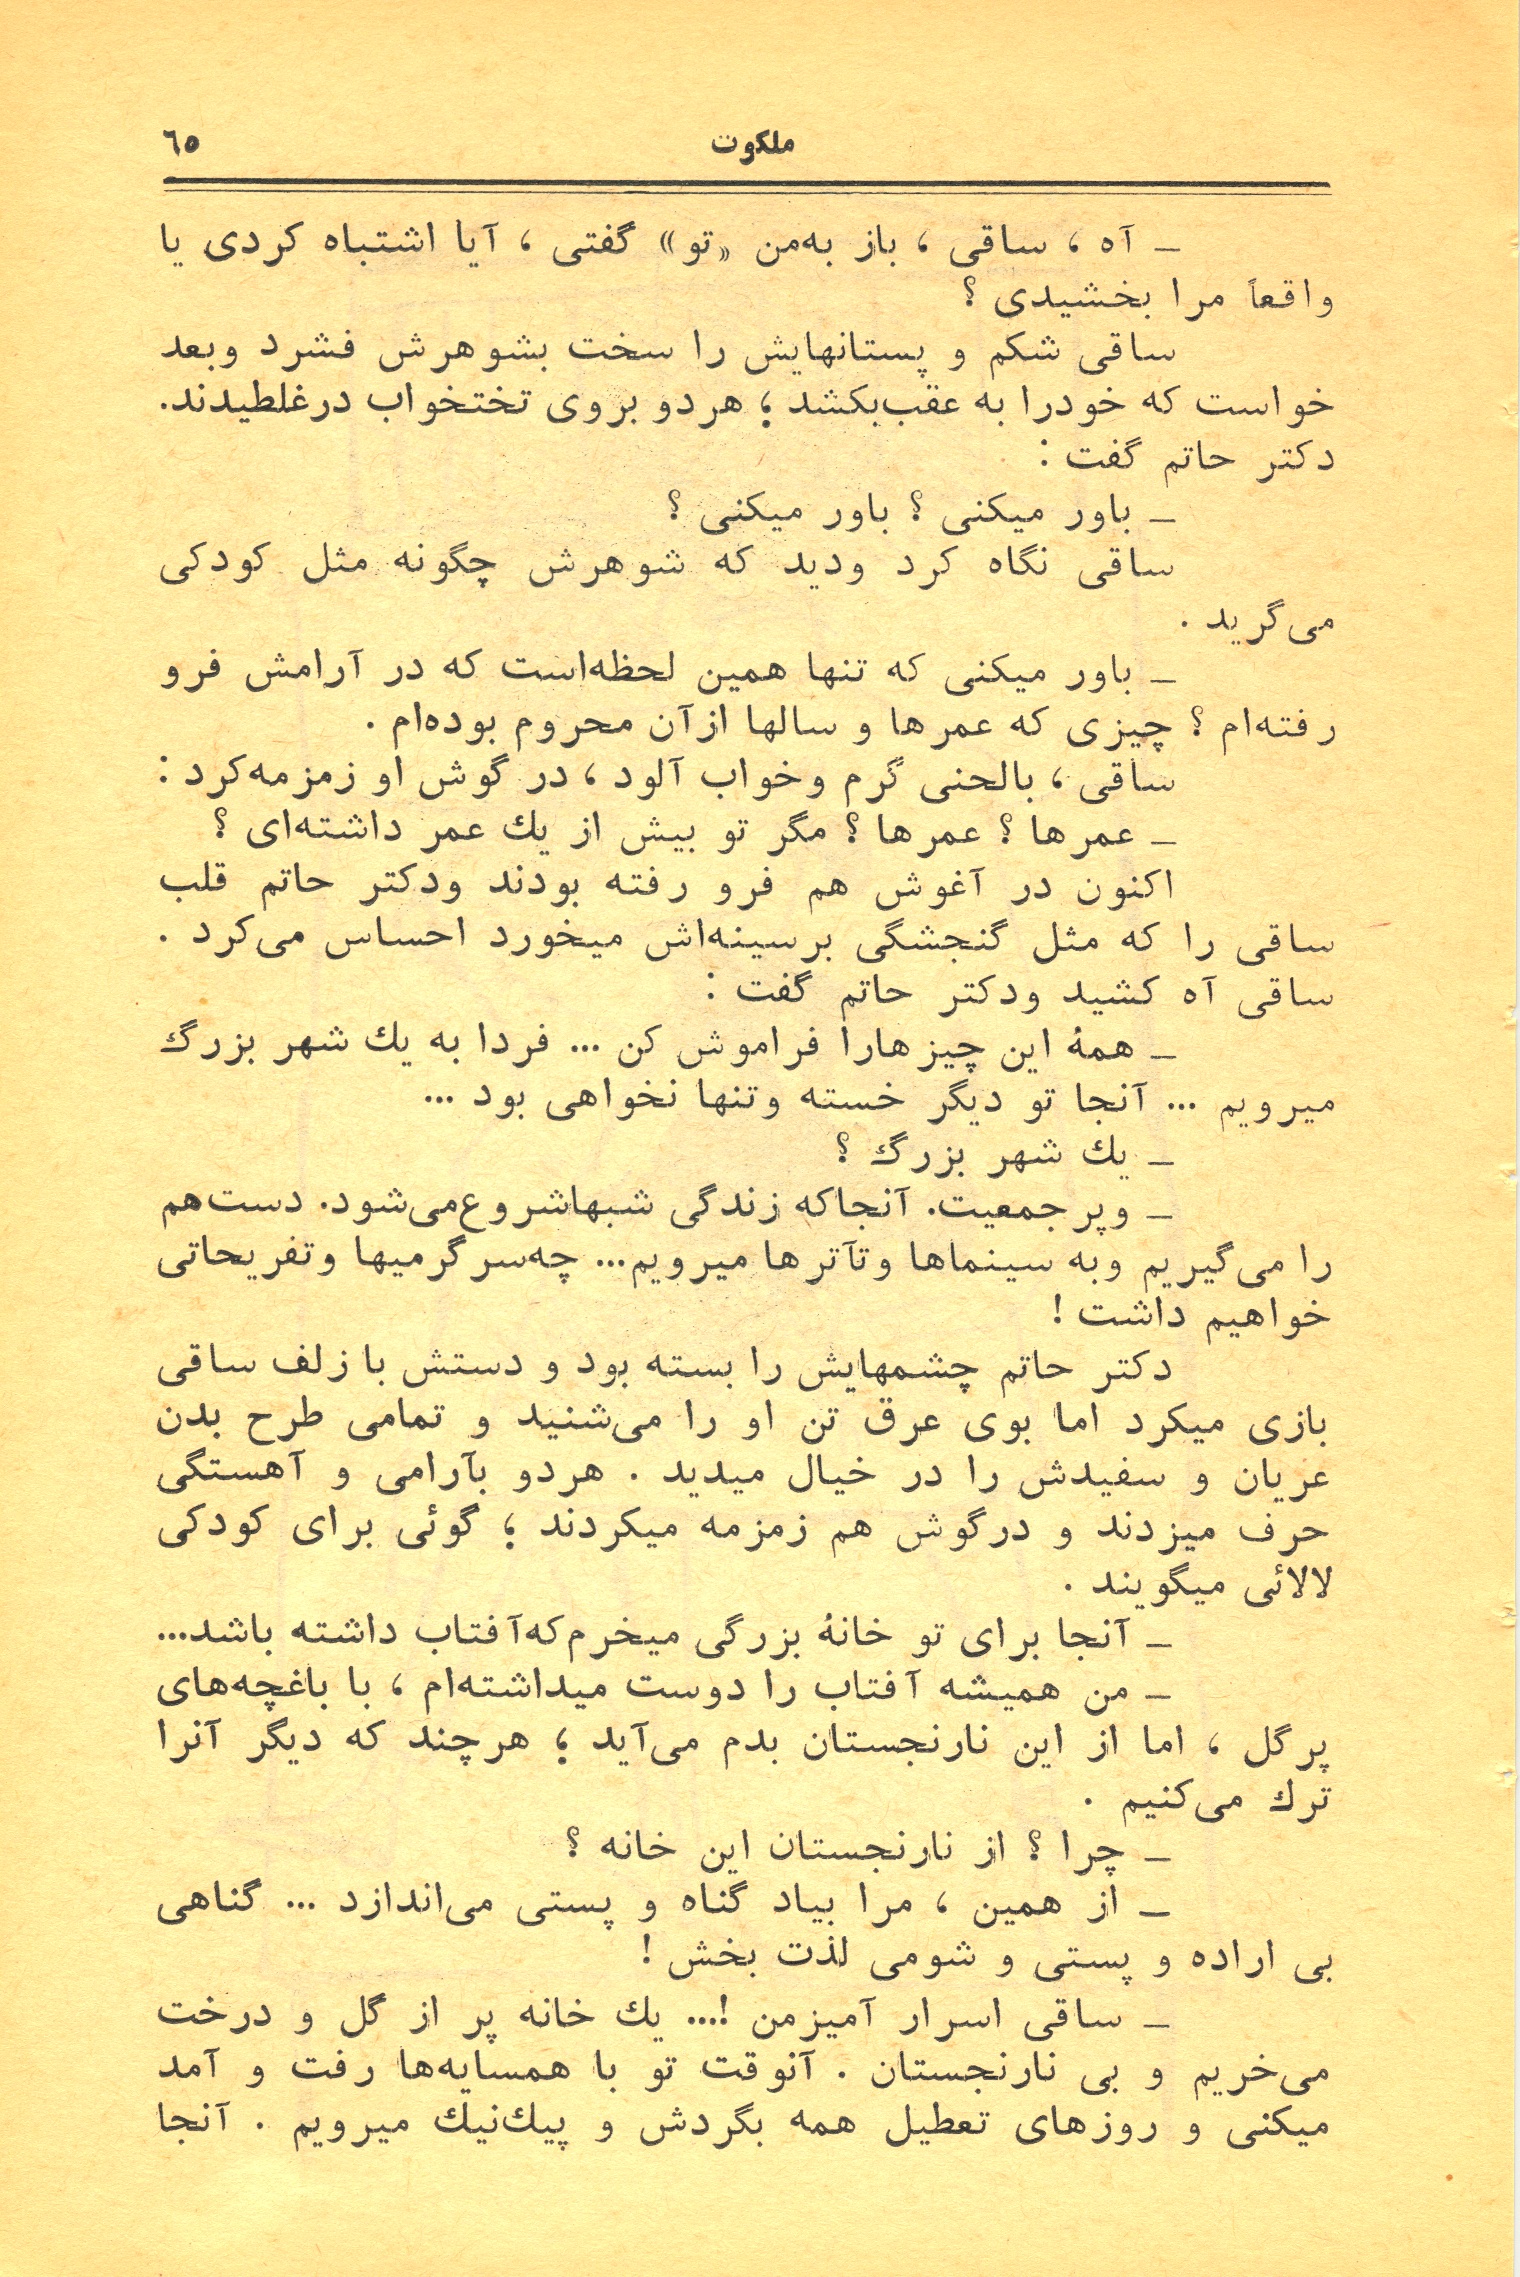 ملکوت ٦٥
ـ آه ، ساقی ، باز به‌من «تو» گفتی ، آیا اشتباه کردی یا
واقعاً مرا بخشیدی ؟
ساقی شکم و پستانهایش را سخت بشوهرش فشرد وبعد
خواست که خودرا به عقب‌بکشد ؛ هردو بروی تختخواب درغلطیدند.
دکتر حاتم گفت :
ـ باور میکنی ؟ باور میکنی ؟
ساقی نگاه کرد ودید که شوهرش چگونه مثل کودکی
می‌گرید .
ـ باور میکنی که تنها همین لحظه‌است که در آرامش فرو
رفته‌ام ؟ چیزی که عمرها و سالها ازآن محروم بوده‌ام .
ساقی ، بالحنی گرم وخواب آلود ، در گوش او زمزمه‌کرد :
ـ عمرها ؟ عمرها ؟ مگر تو بیش از یك عمر داشته‌ای ؟
اکنون در آغوش هم فرو رفته بودند ودکتر حاتم قلب
ساقی را که مثل گنجشگی برسینه‌اش میخورد احساس می‌کرد .
ساقی آه کشید ودکتر حاتم گفت :
ـ همهٔ این چیزهارا فراموش کن ... فردا به یك شهر بزرگ
میرویم ... آنجا تو دیگر خسته وتنها نخواهی بود ...
ـ یك شهر بزرگ ؟
ـ وپرجمعیت. آنجاکه زندگی شبهاشروع‌می‌شود. دست‌هم
را می‌گیریم وبه سینماها وتآترها میرویم... چه‌سرگرمیها وتفریحاتی
خواهیم داشت !
دکتر حاتم چشمهایش را بسته بود و دستش با زلف ساقی
بازی میکرد اما بوی عرق تن او را می‌شنید و تمامی طرح بدن
عریان و سفیدش را در خیال میدید . هردو بآرامی و آهستگی
حرف میزدند و درگوش هم زمزمه میکردند ؛ گوئی برای کودکی
لالائی میگویند .
ـ آنجا برای تو خانهٔ بزرگی میخرم‌که‌آفتاب داشته باشد...
ـ من همیشه آفتاب را دوست میداشته‌ام ، با باغچه‌های
پرگل ، اما از این نارنجستان بدم می‌آید ؛ هرچند که دیگر آنرا
ترك می‌کنیم .
ـ چرا ؟ از نارنجستان این خانه ؟
ـ از همین ، مرا بیاد گناه و پستی می‌اندازد ... گناهی
بی اراده و پستی و شومی لذت بخش !
ـ ساقی اسرار آمیزمن !... یك خانه پر از گل و درخت
می‌خریم و بی نارنجستان . آنوقت تو با همسایه‌ها رفت و آمد
میکنی و روزهای تعطیل همه بگردش و پیك‌نیك میرویم . آنجا